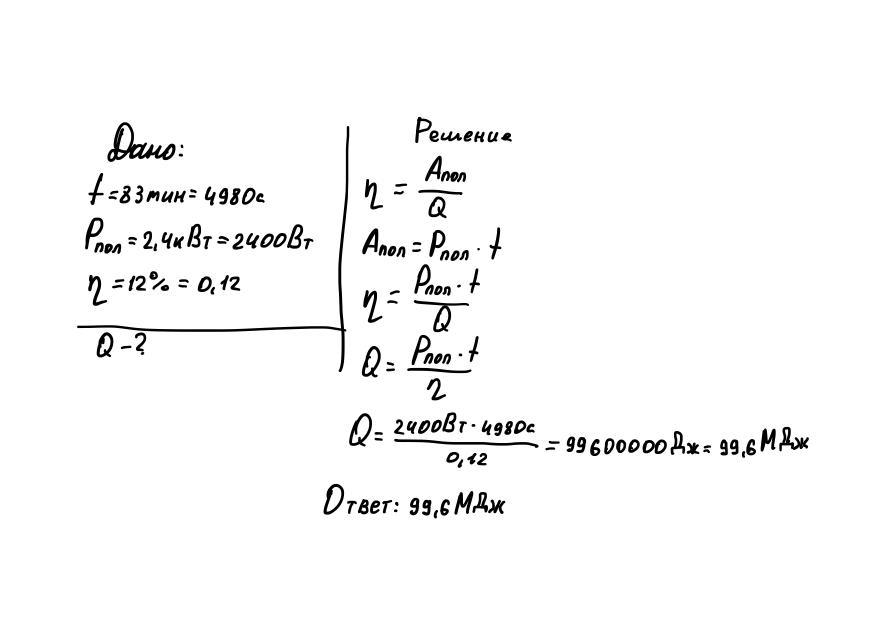 Дано:
t = 83 мин = 4980с
Pпол = 2,4кВт = 2400Вт
η = 12% = 0,12
Q - ?
Решение
η = Aпол / Q
Aпол = Pпол · t
η = Pпол · t / Q
Q = Pпол · t / η
Q = 2400Вт · 4980с / 0,12 = 99600000 Дж = 99,6 МДж
Ответ: 99,6 МДж